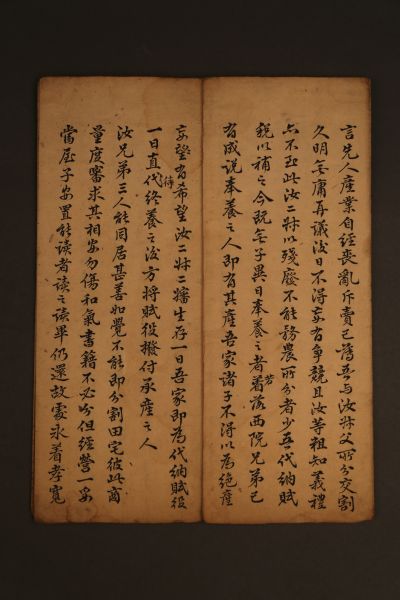 言先人産業自経喪亂斥賣已舊吾与汝叔父所分交割
久明無庸再議後日不得妄有争競且汝等粗知義禮
亦不至此汝二叔以殘廢不能務農所分者少吾代納賦
税以補之今既無子異日奉養之者着落西院兄弟已
有成説奉養之人即有其産吾家諸子不得以為絶産
妄望有希望汝二叔二嬸生存一日吾家即為代納賦役
一日直待代終養之後方將賦役撥付承産之人
汝兄弟三人能同居甚善如覺不能即分割田宅彼此商
量度審求其相安勿傷和氣書籍不必分但經營一妥
當屋子安置能读者读之读畢仍還故處永着孝寬